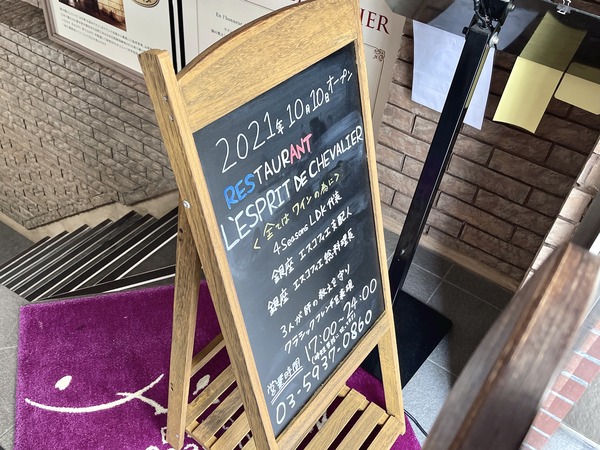 2021年10月10日オープン
RESTAURANT
L'ESPRIT DE CHEVALIER
<全てはワインの為に>
4 Seasons LDK 代表
銀座 エスコフィエ支配人
銀座 エスコフィエ総料理長
3人が師の教えを守り
クラシックフレンチを表現
営業時間 17:00~24:00
03-5937-0860